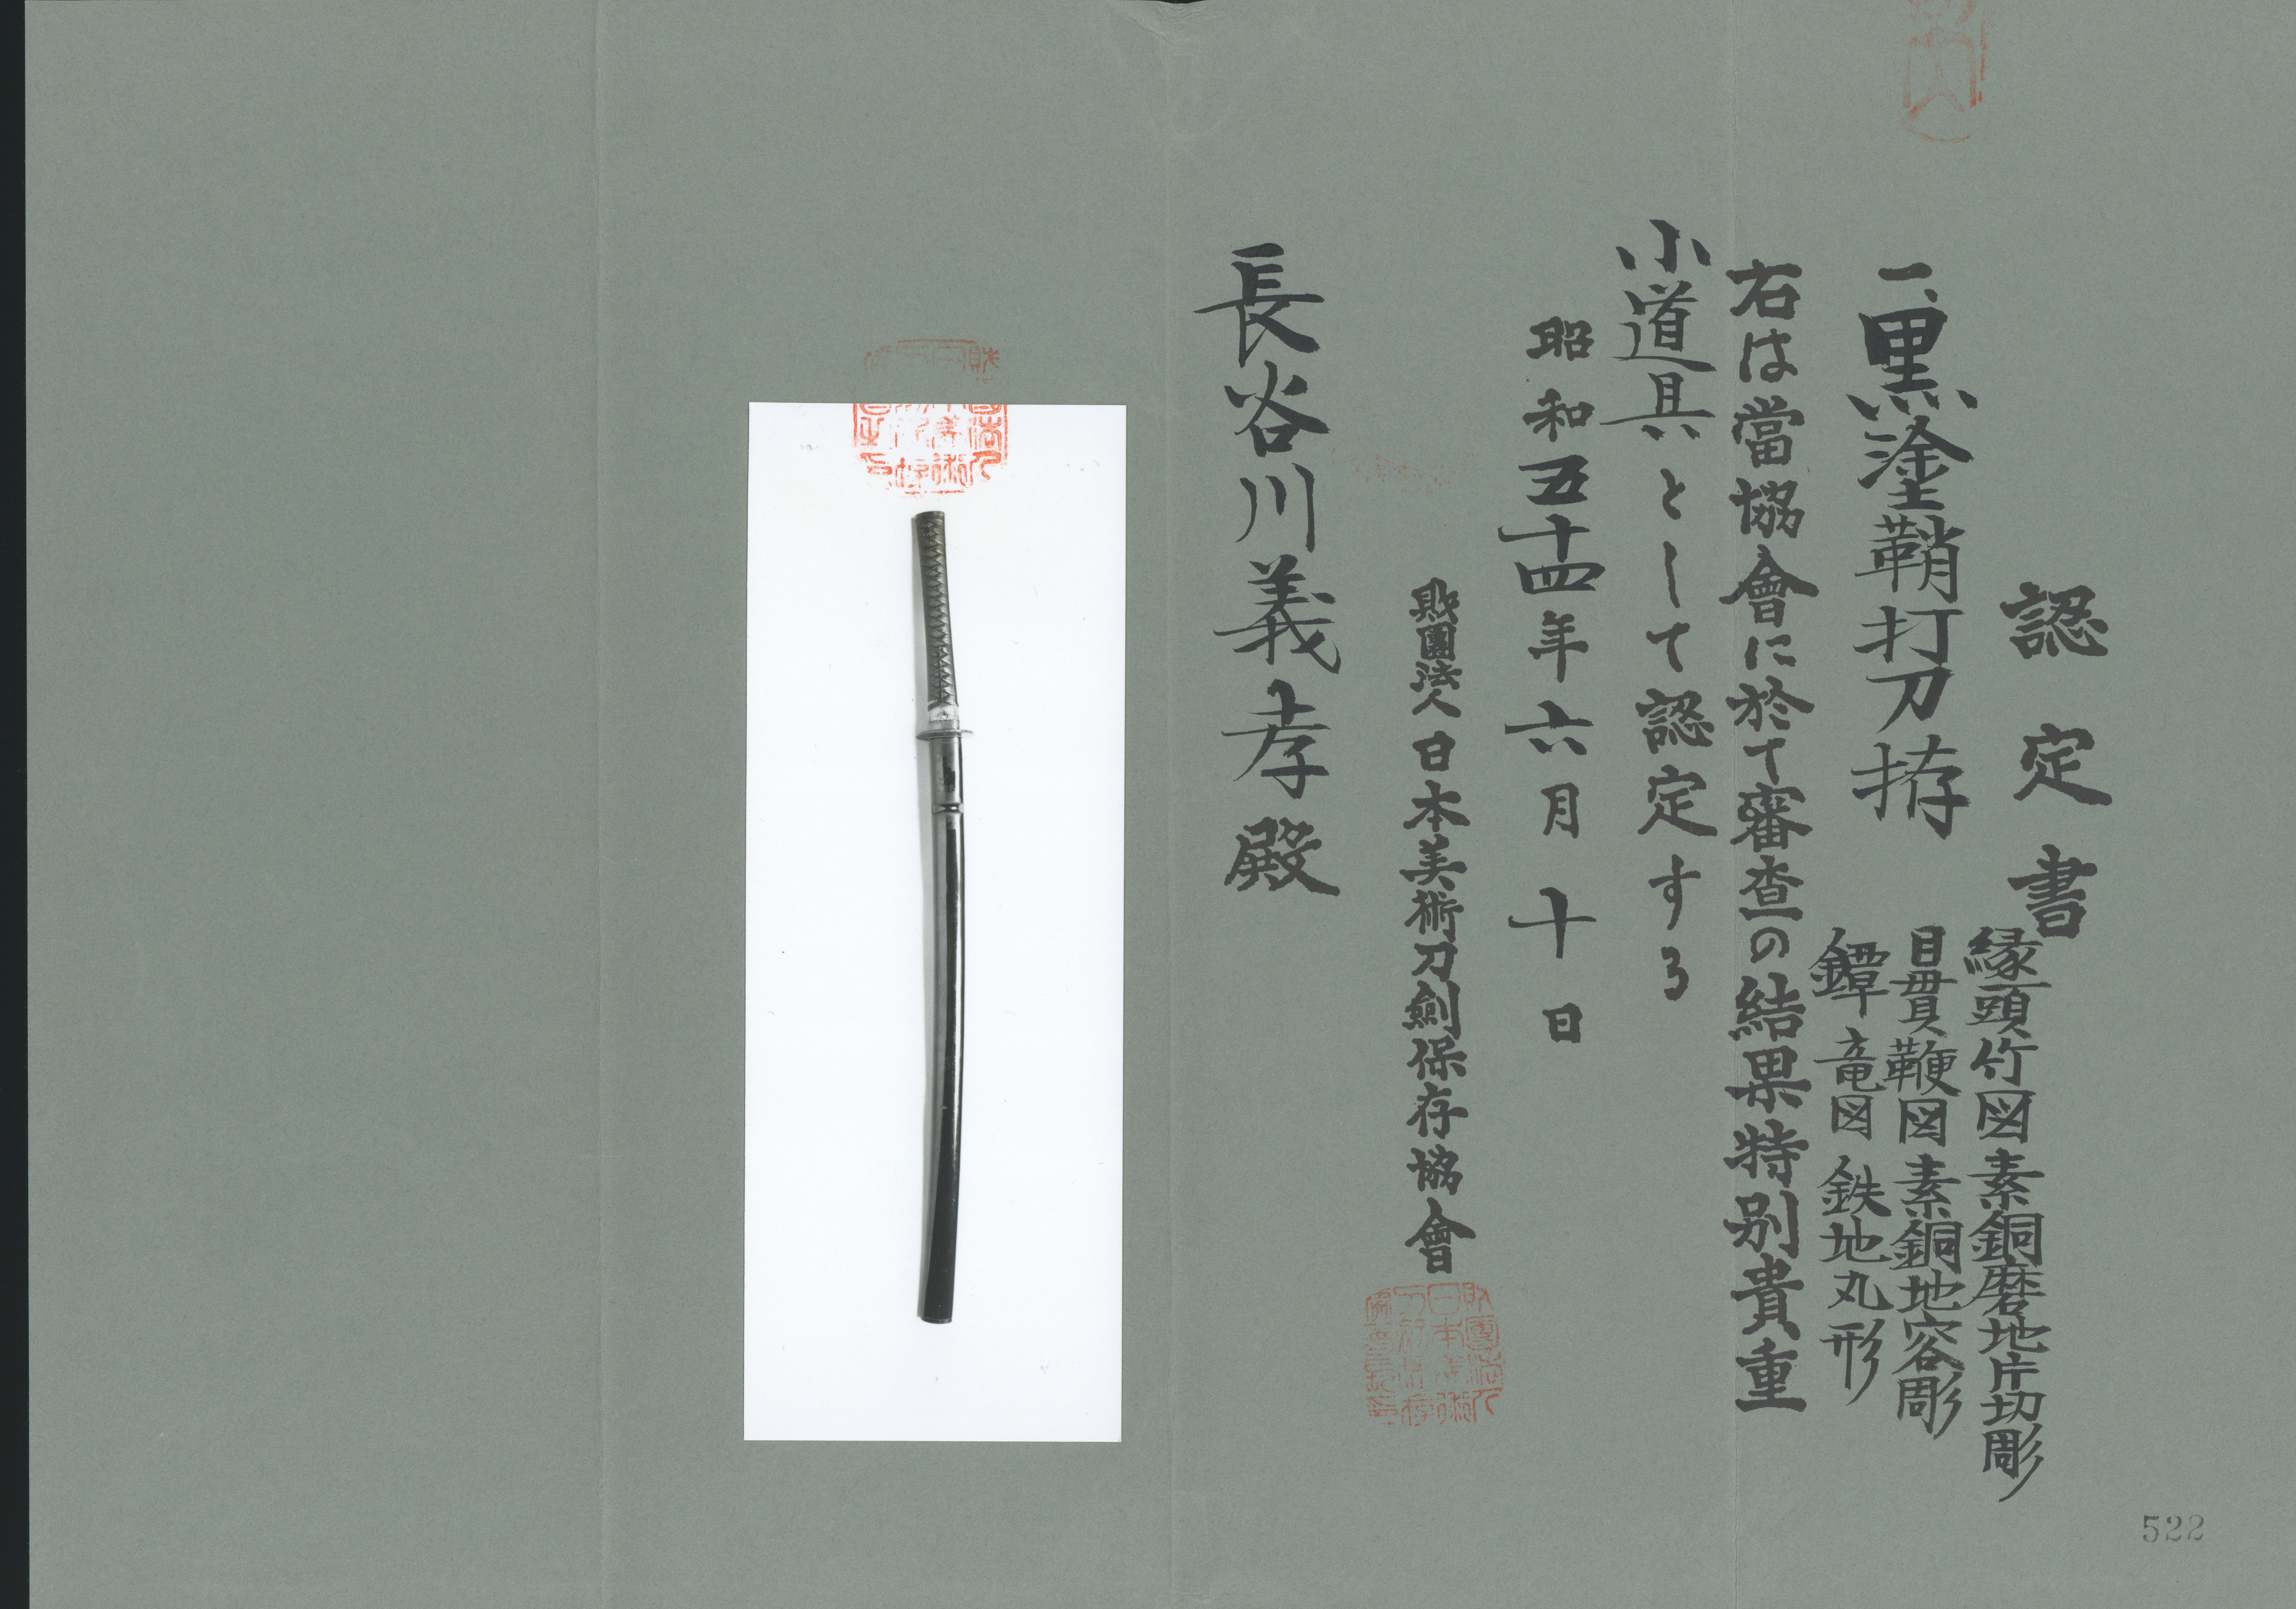 認定書
一、黒塗鞘打刀拵
縁頭竹図素銅磨地片切彫
目貫鞭図素銅地容彫
鐔竜図鉄地丸形
右は當協會に於て審査の結果特別貴重
小道具として認定する
昭和五十四年六月十日
財團法人日本美術刀劍保存協會
長谷川義孝殿
522